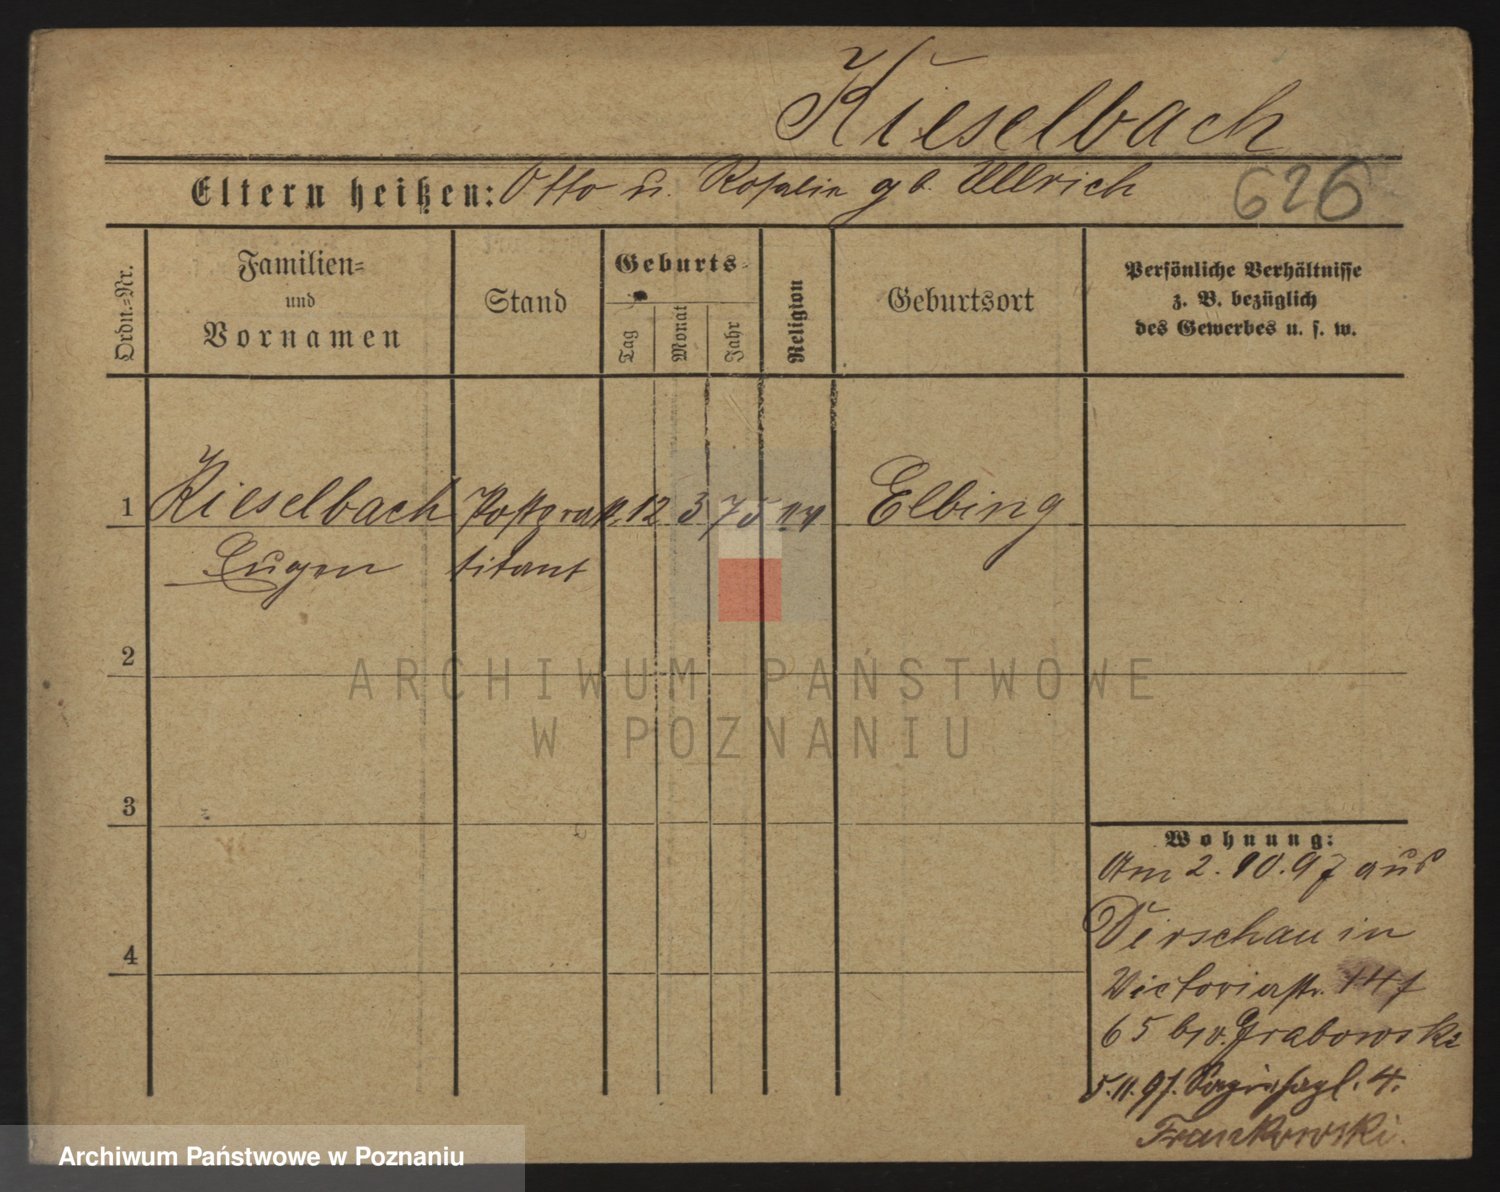 Kieselbach
Eltern heißen: Otto u. Rosalie gb. Ullrich
626
Ordn.=Nr.
Familien=
und
Vornamen
Stand
Geburts=
Tag
Monat
Jahr
Religion
Geburtsort
Persönliche Verhältnisse
z. B. bezüglich
des Gewerbes u. s. w.
1 Kieselbach 12 3 75 ev Elbing
Eugen
2
3
4
Wohnung:
Am 2. 10. 97 aus
Dirschau in
Victoriastr.
65 v. Grabowski
5. 11. 97. 4.
Frankowski.
ARCHIWUM PAŃSTWOWE
W POZNANIU
Archiwum Państwowe w Poznaniu